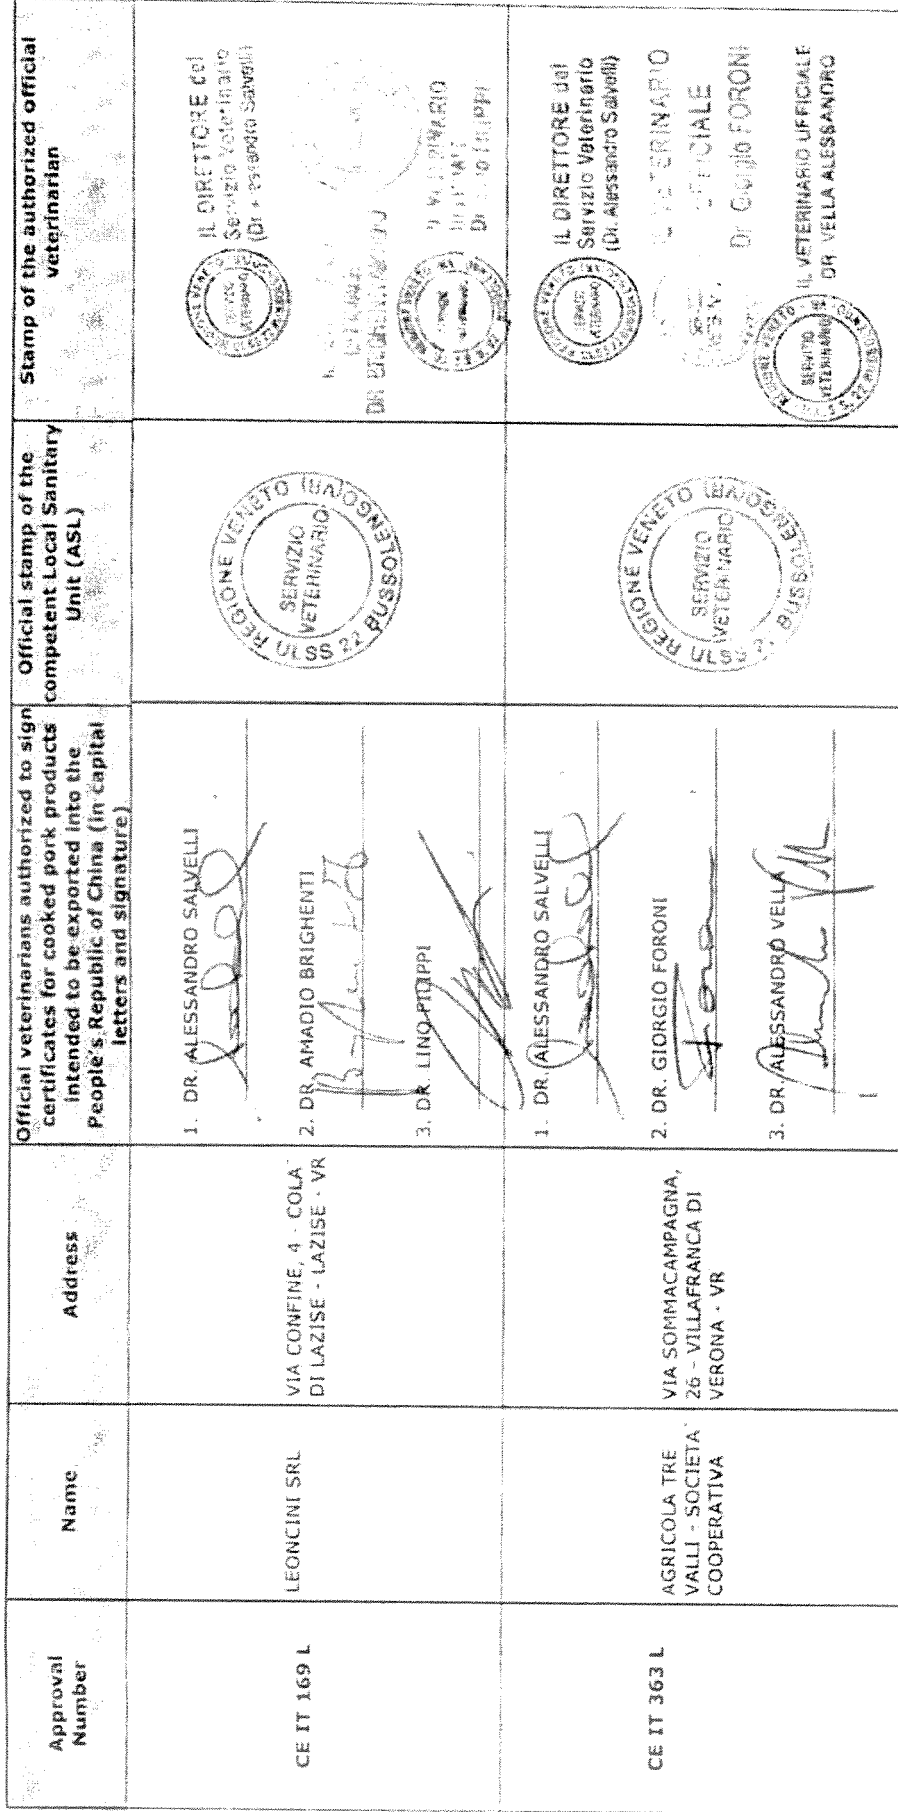 Approval
Number
Name
Address
Official veterinarians authorized to sign
certificates for cooked pork products
intended to be exported into the
People's Republic of China (in capital
letters and signature)
Official stamp of the
competent Local Sanitary
Unit (ASL)
Stamp of the authorized official
veterinarian
CE IT 169 L
LEONCINI SRL
VIA CONFINE, 4 - COLA
DI LAZISE - LAZISE - VR
1. DR. ALESSANDRO SALVELLI
2. DR. AMADIO BRIGHENTI
3. DR. LINO FILIPPI
REGIONE VENETO
ULSS 22 BUSSOLENGO (VR)
SERVIZIO
VETERINARIO
IL DIRETTORE del
Servizio Veterinario
(Dr. Alessandro Salvelli)
CE IT 363 L
AGRICOLA TRE
VALLI - SOCIETA'
COOPERATIVA
VIA SOMMACAMPAGNA,
26 - VILLAFRANCA DI
VERONA - VR
1. DR. ALESSANDRO SALVELLI
2. DR. GIORGIO FORONI
3. DR. ALESSANDRO VELLA
REGIONE VENETO
ULSS 22 BUSSOLENGO (VR)
SERVIZIO
VETERINARIO
IL DIRETTORE del
Servizio Veterinario
(Dr. Alessandro Salvelli)
IL VETERINARIO
UFFICIALE
Dr. Giorgio FORONI
IL VETERINARIO UFFICIALE
DR VELLA ALESSANDRO
SERVIZIO
VETERINARIO